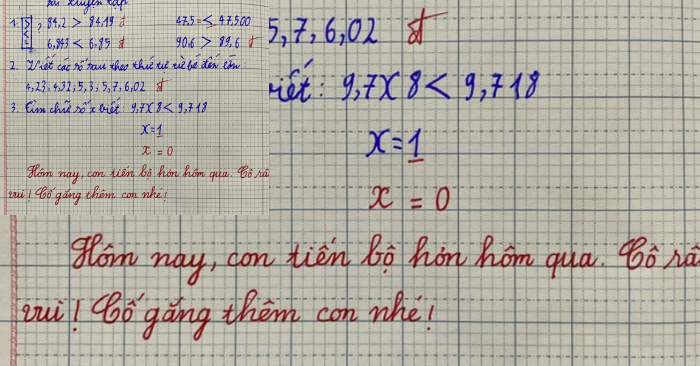 Bài luyện tập
1. > < = , 84,2 > 84,19 đ 47,5 = < 47,500
6,843 < 6,85 đ 90,6 > 89,6 đ
2. Viết các số sau theo thứ tự từ bé đến lớn:
4,23; 4,32; 5,3; 5,7; 6,02 đ
3. Tìm chữ số x biết: 9,7x8 < 9,718
x = 1
x = 0
Hôm nay, con tiến bộ hơn hôm qua. Cô rấ
vui! Cố gắng thêm con nhé!
5,7,6,02 đ
biết: 9,7x8 < 9,718
x = 1
x = 0
Hôm nay, con tiến bộ hơn hôm qua. Cô rấ
vui! Cố gắng thêm con nhé!